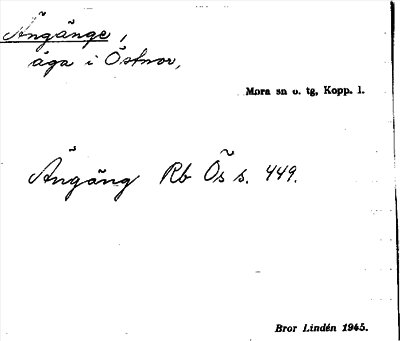 Ängänge,
äga i Östnor,
Mora sn o. tg, Kopp. l.
Ängäng Rb Ös s. 449.
Bror Lindén 1945.